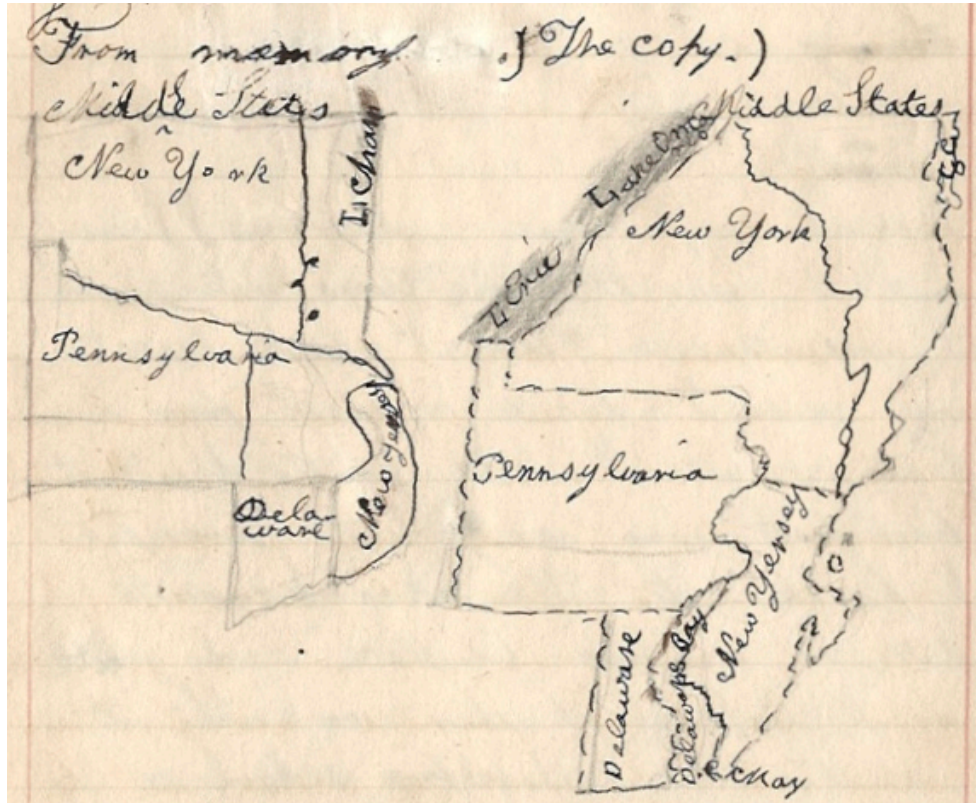 From memory. } (The copy.)
Middle States
New York
L Cham
Pennsylvania
New Yersey
Dela-
ware
Middle States
Lake Onta
L Erie
New York
L C
Pennsylvania
New Yersey
Delaware
Delaware Bay
C May